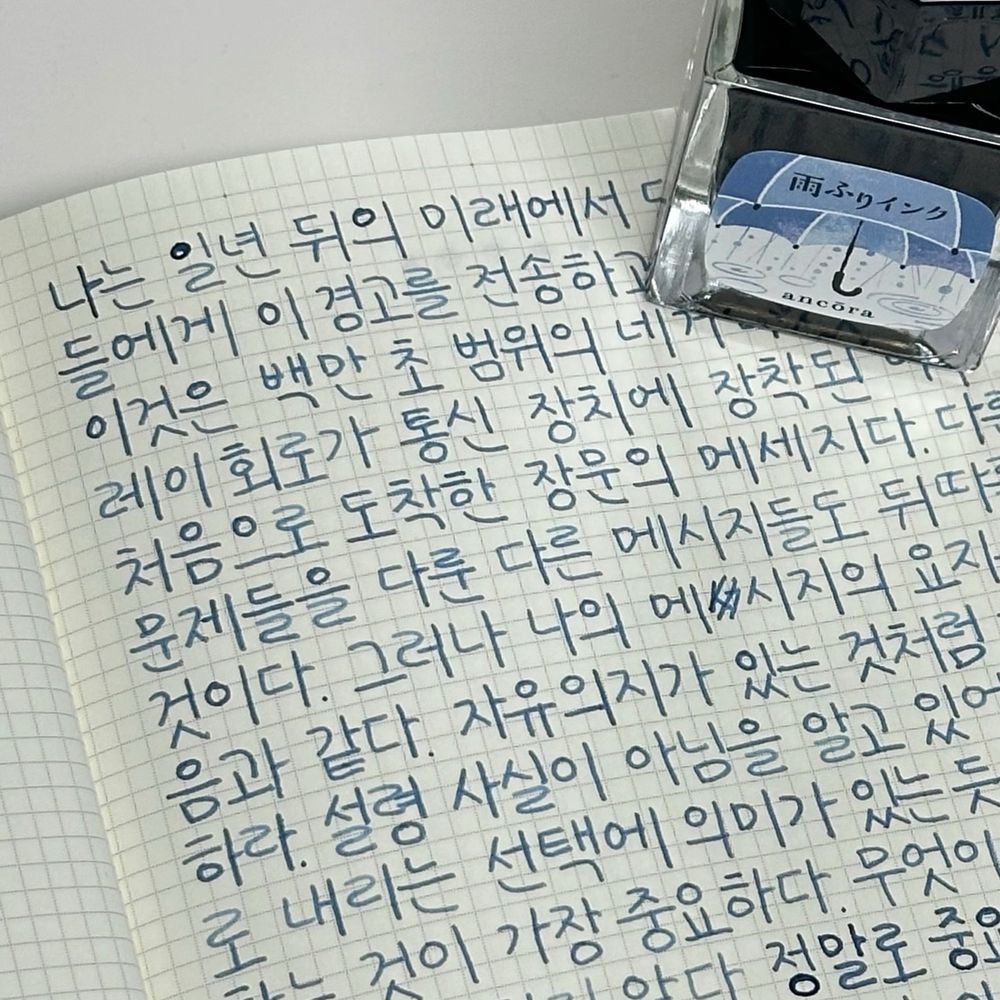 雨ふりインク
ancora
나는 일년 뒤의 미래에서
들에게 이 경고를 전송하고
이것은 백만 초 범위의 네거
레이 회로가 통신 장치에 장착된
처음으로 도착한 장문의 메세지다. 다른
문제들을 다룬 다른 메시지들도 뒤따
것이다. 그러나 나의 메시지의 요지
음과 같다. 자유의지가 있는 것처럼
하라. 설령 사실이 아님을 알고 있어
로 내리는 선택에 의미가 있는 듯
것이 가장 중요하다. 무엇이
정말로 중요